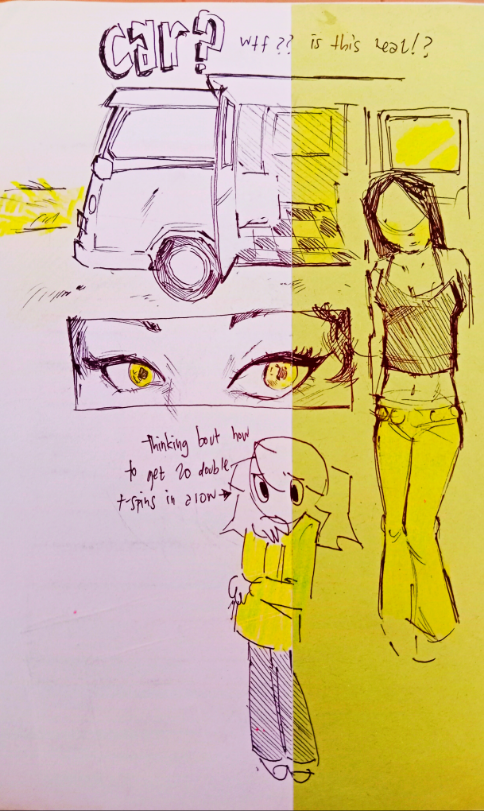 car?
wtf?? is this real!?
thinking bout how
to get 20 double
t-spins in a row →